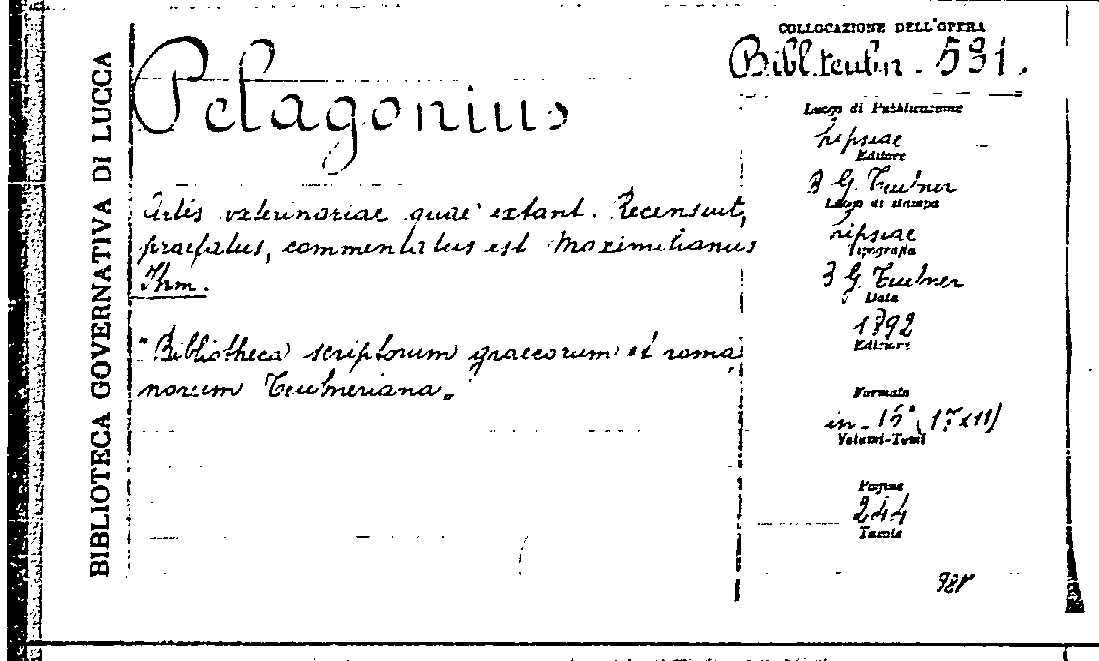 BIBLIOTECA GOVERNATIVA DI LUCCA
Pelagonius
Artis veterinariae quae extant. Recensuit,
praefatus, commentatus est Maximilianus
Ihm.
"Bibliotheca scriptorum graecorum et roma
norum Teubneriana„
COLLOCAZIONE DELL'OPERA
Bibl. teubn. 531.
Luogo di Pubblicazione
Lipsiae
Editore
B G. Teubner
Luogo di stampa
Lipsiae
Tipografia
B G. Teubner
Data
1892
Edizione
Formato
in-16° (17x11)
Volumi-Tomi
Pagine
244
Tavole